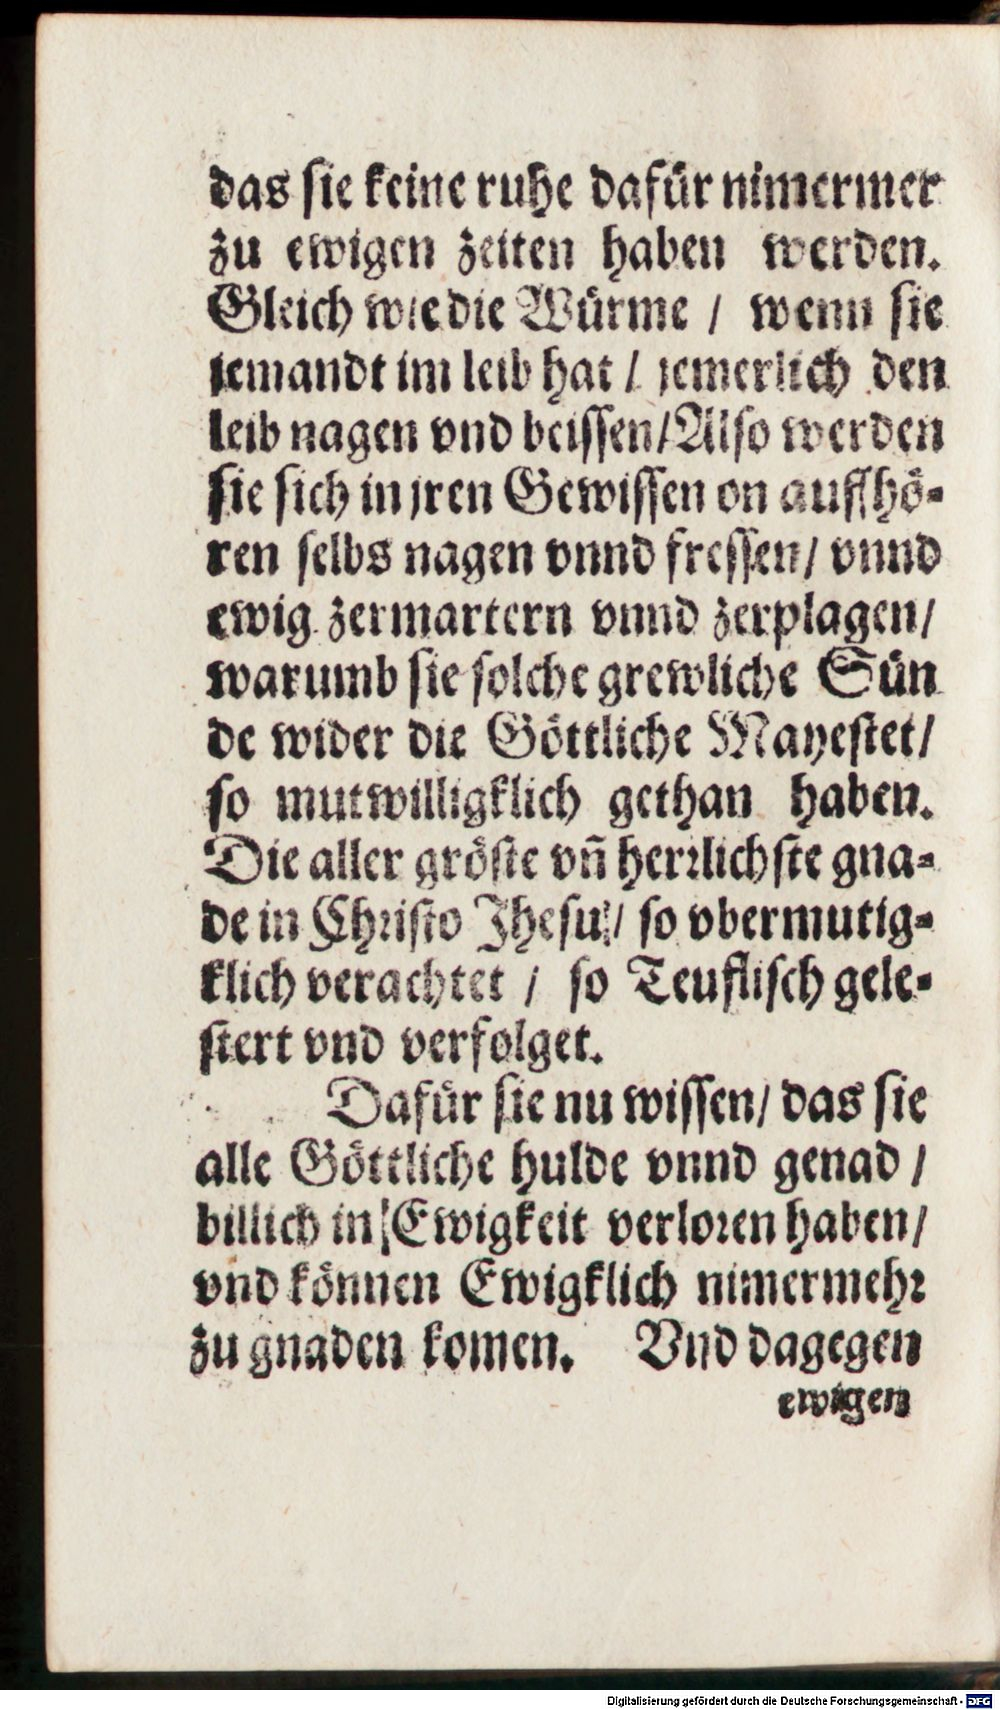 das sie keine ruhe dafür nimermer
zu ewigen zeiten haben werden.
Gleich wie die Würme / wenn sie
jemandt im leib hat / jemerlich den
leib nagen vnd beissen / Also werden
sie sich in jren Gewissen on auffhö-
ren selbs nagen vnnd fressen / vnnd
ewig zermartern vnnd zerplagen /
warumb sie solche grewliche Sün
de wider die Göttliche Mayestet /
so mutwilligklich gethan haben.
Die aller gröste vñ herrlichste gna-
de in Christo Jhesu / so vbermutig-
klich verachtet / so Teuflisch gele-
stert vnd verfolget.
Dafür sie nu wissen / das sie
alle Göttliche hulde vnnd genad /
billich in Ewigkeit verloren haben /
vnd können Ewigklich nimermehr
zu gnaden komen. Vnd dagegen
ewigen
Digitalisierung gefördert durch die Deutsche Forschungsgemeinschaft - DFG